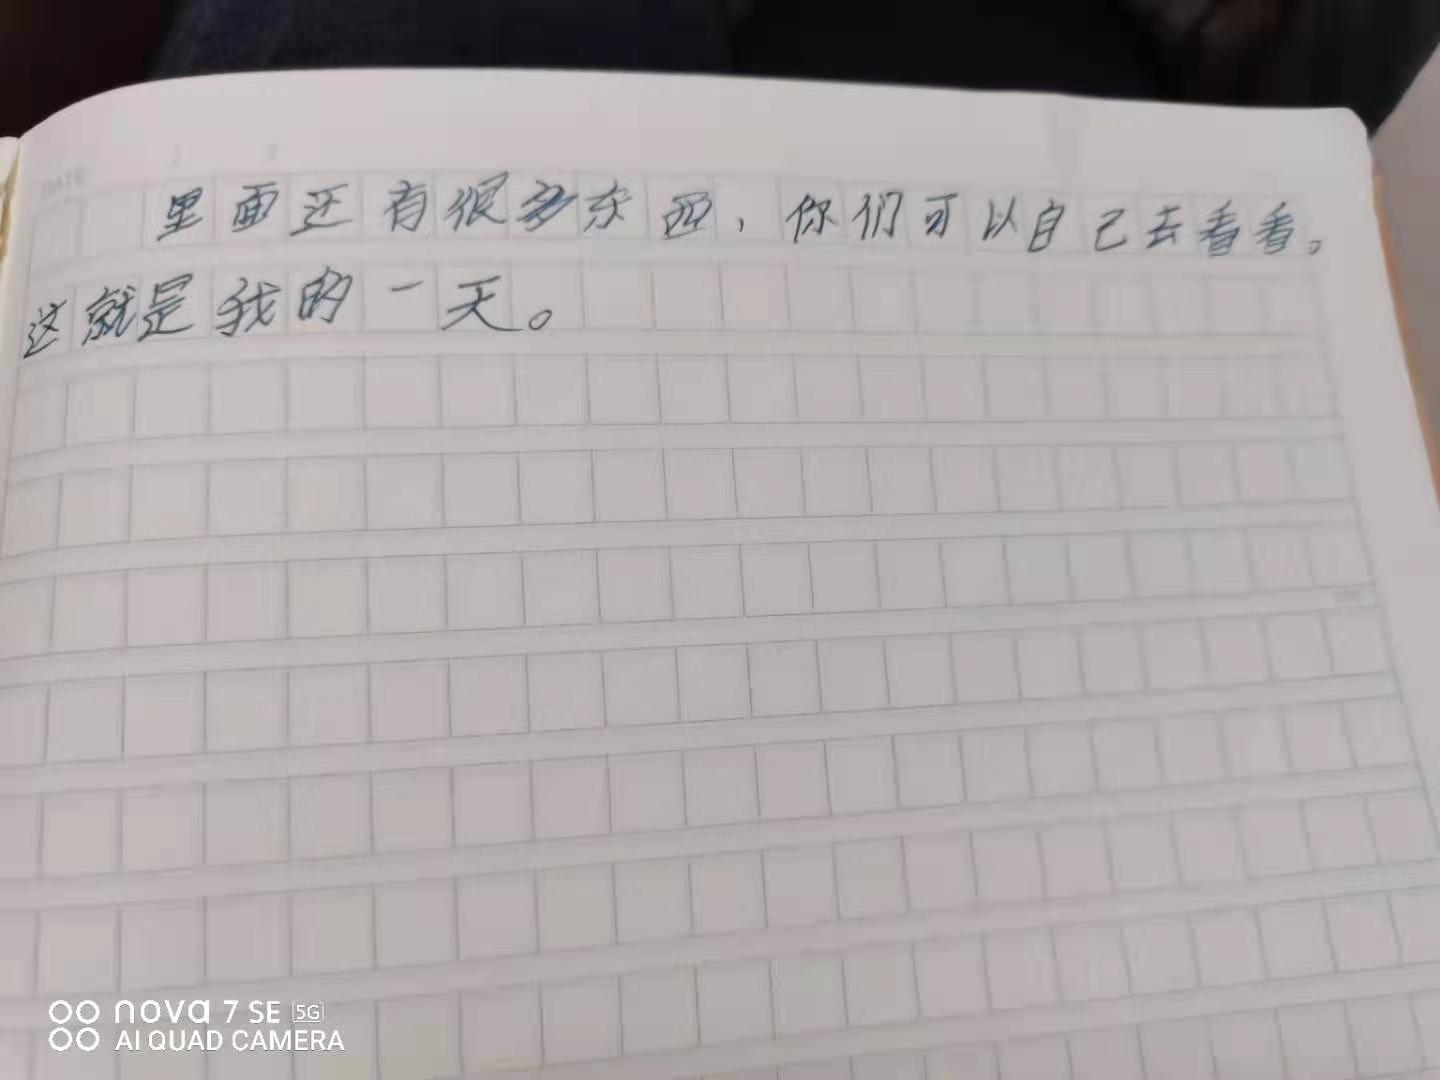 DATE
里面还有很多东西，你们可以自己去看看。
这就是我的一天。
nova 7 SE 5G
AI QUAD CAMERA